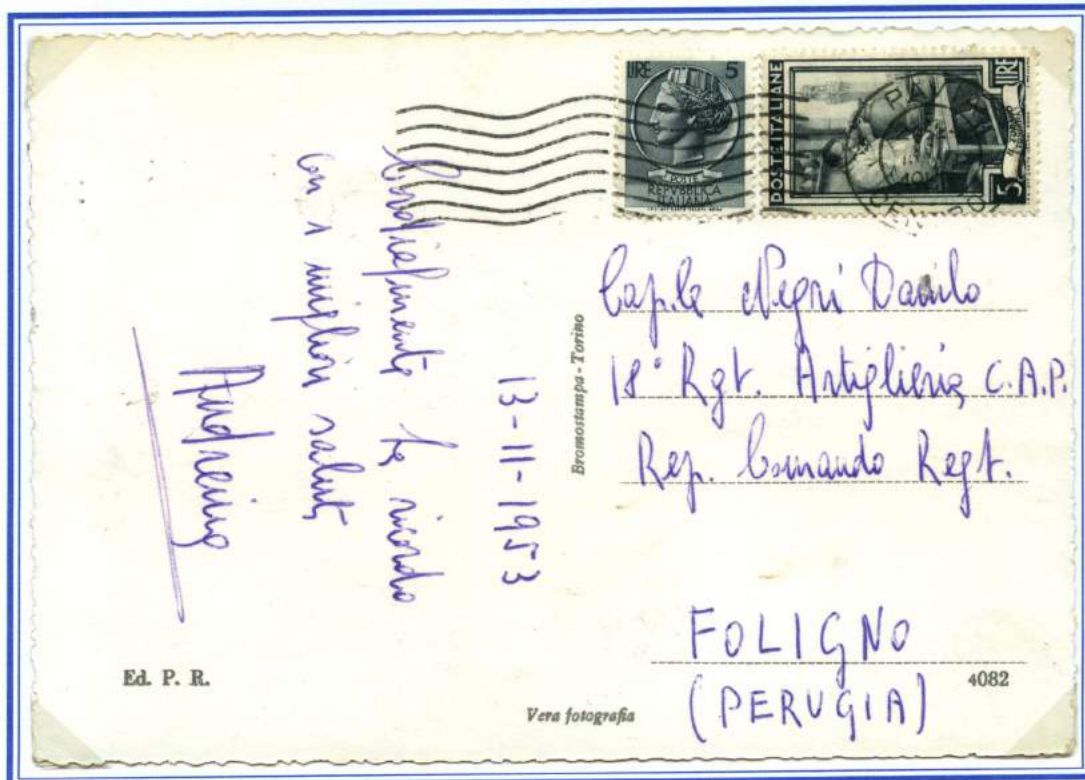 LIRE 5
POSTE
REPVBBLICA
ITALIANA
POSTE ITALIANE
LIRE
5
13-11-1953
Cordialmente La ricordo
con i migliori saluti
Andreino
Bromostampa - Torino
Cap.le Negri Danilo
18° Rgt. Artiglieria C.A.P.
Rep. Comando Regt.
FOLIGNO
(PERUGIA)
Ed. P. R.
Vera fotografia
4082